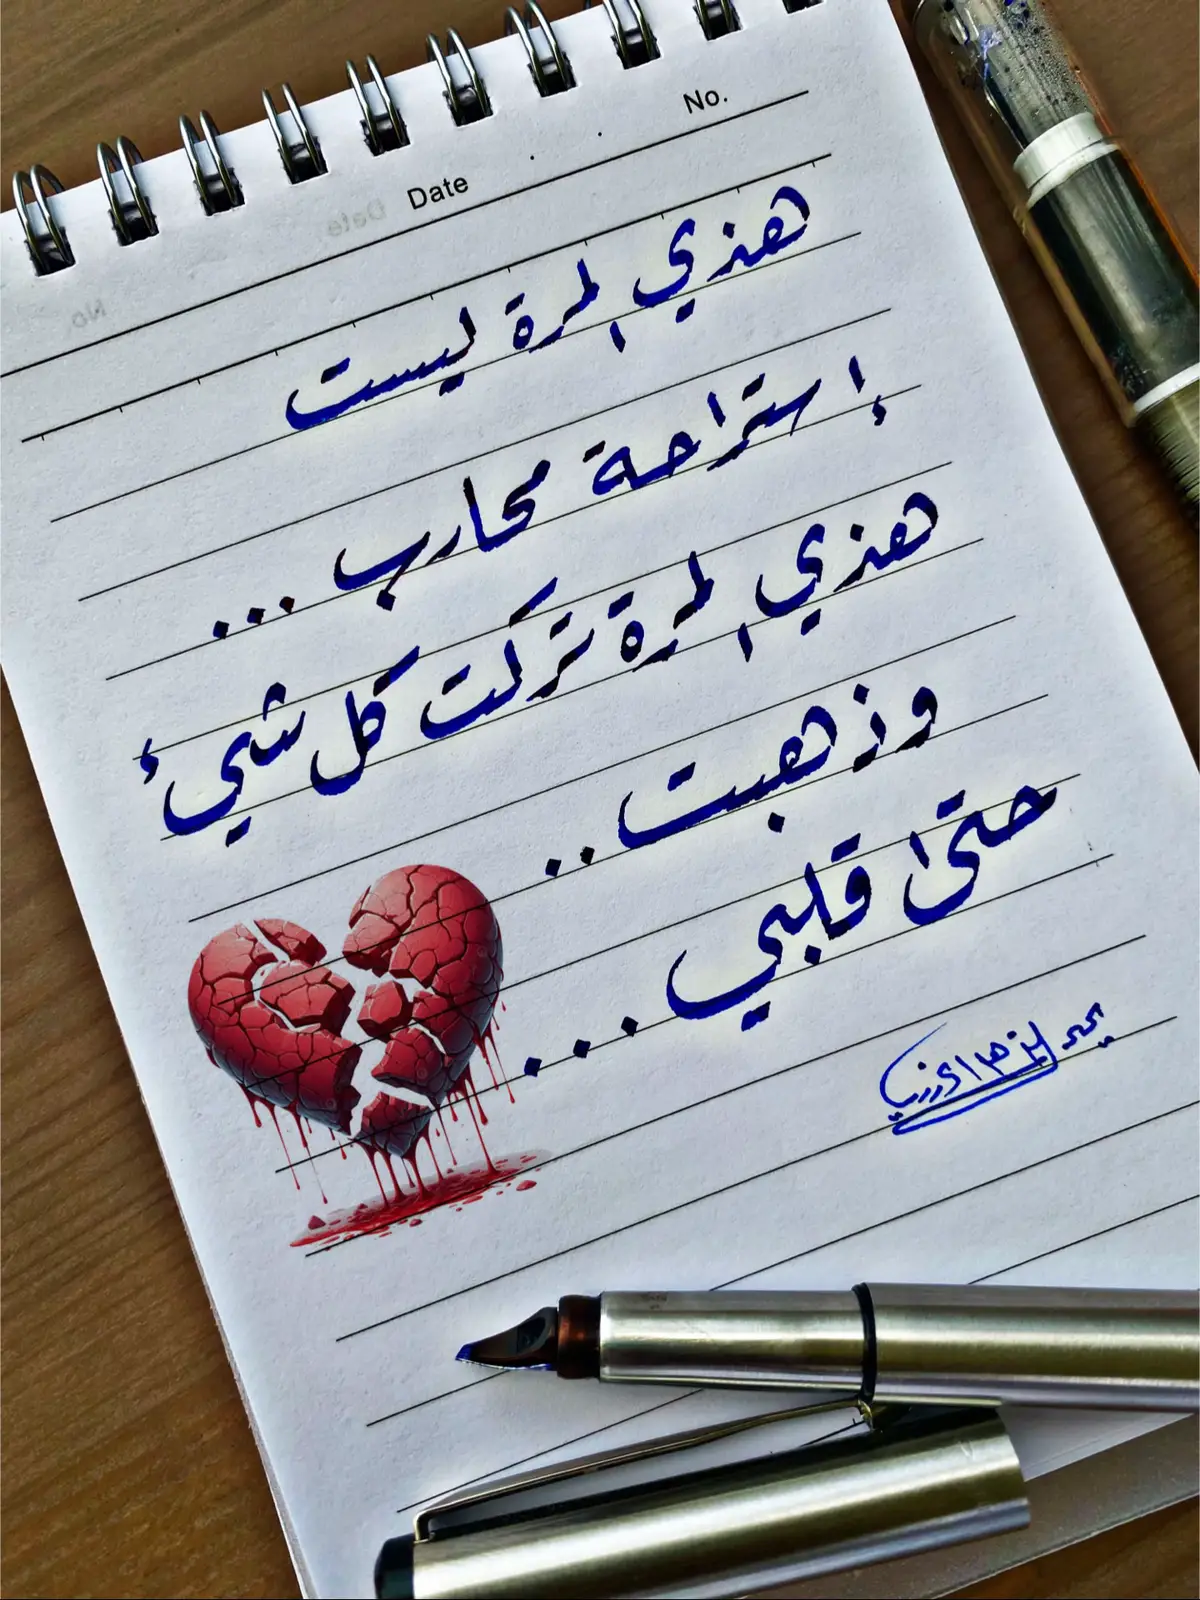 No.
Date
هذي المرة ليست
إستراحة محارب ...
هذي المرة تركت كل شيء
وذهبت ..
حتى قلبي ...